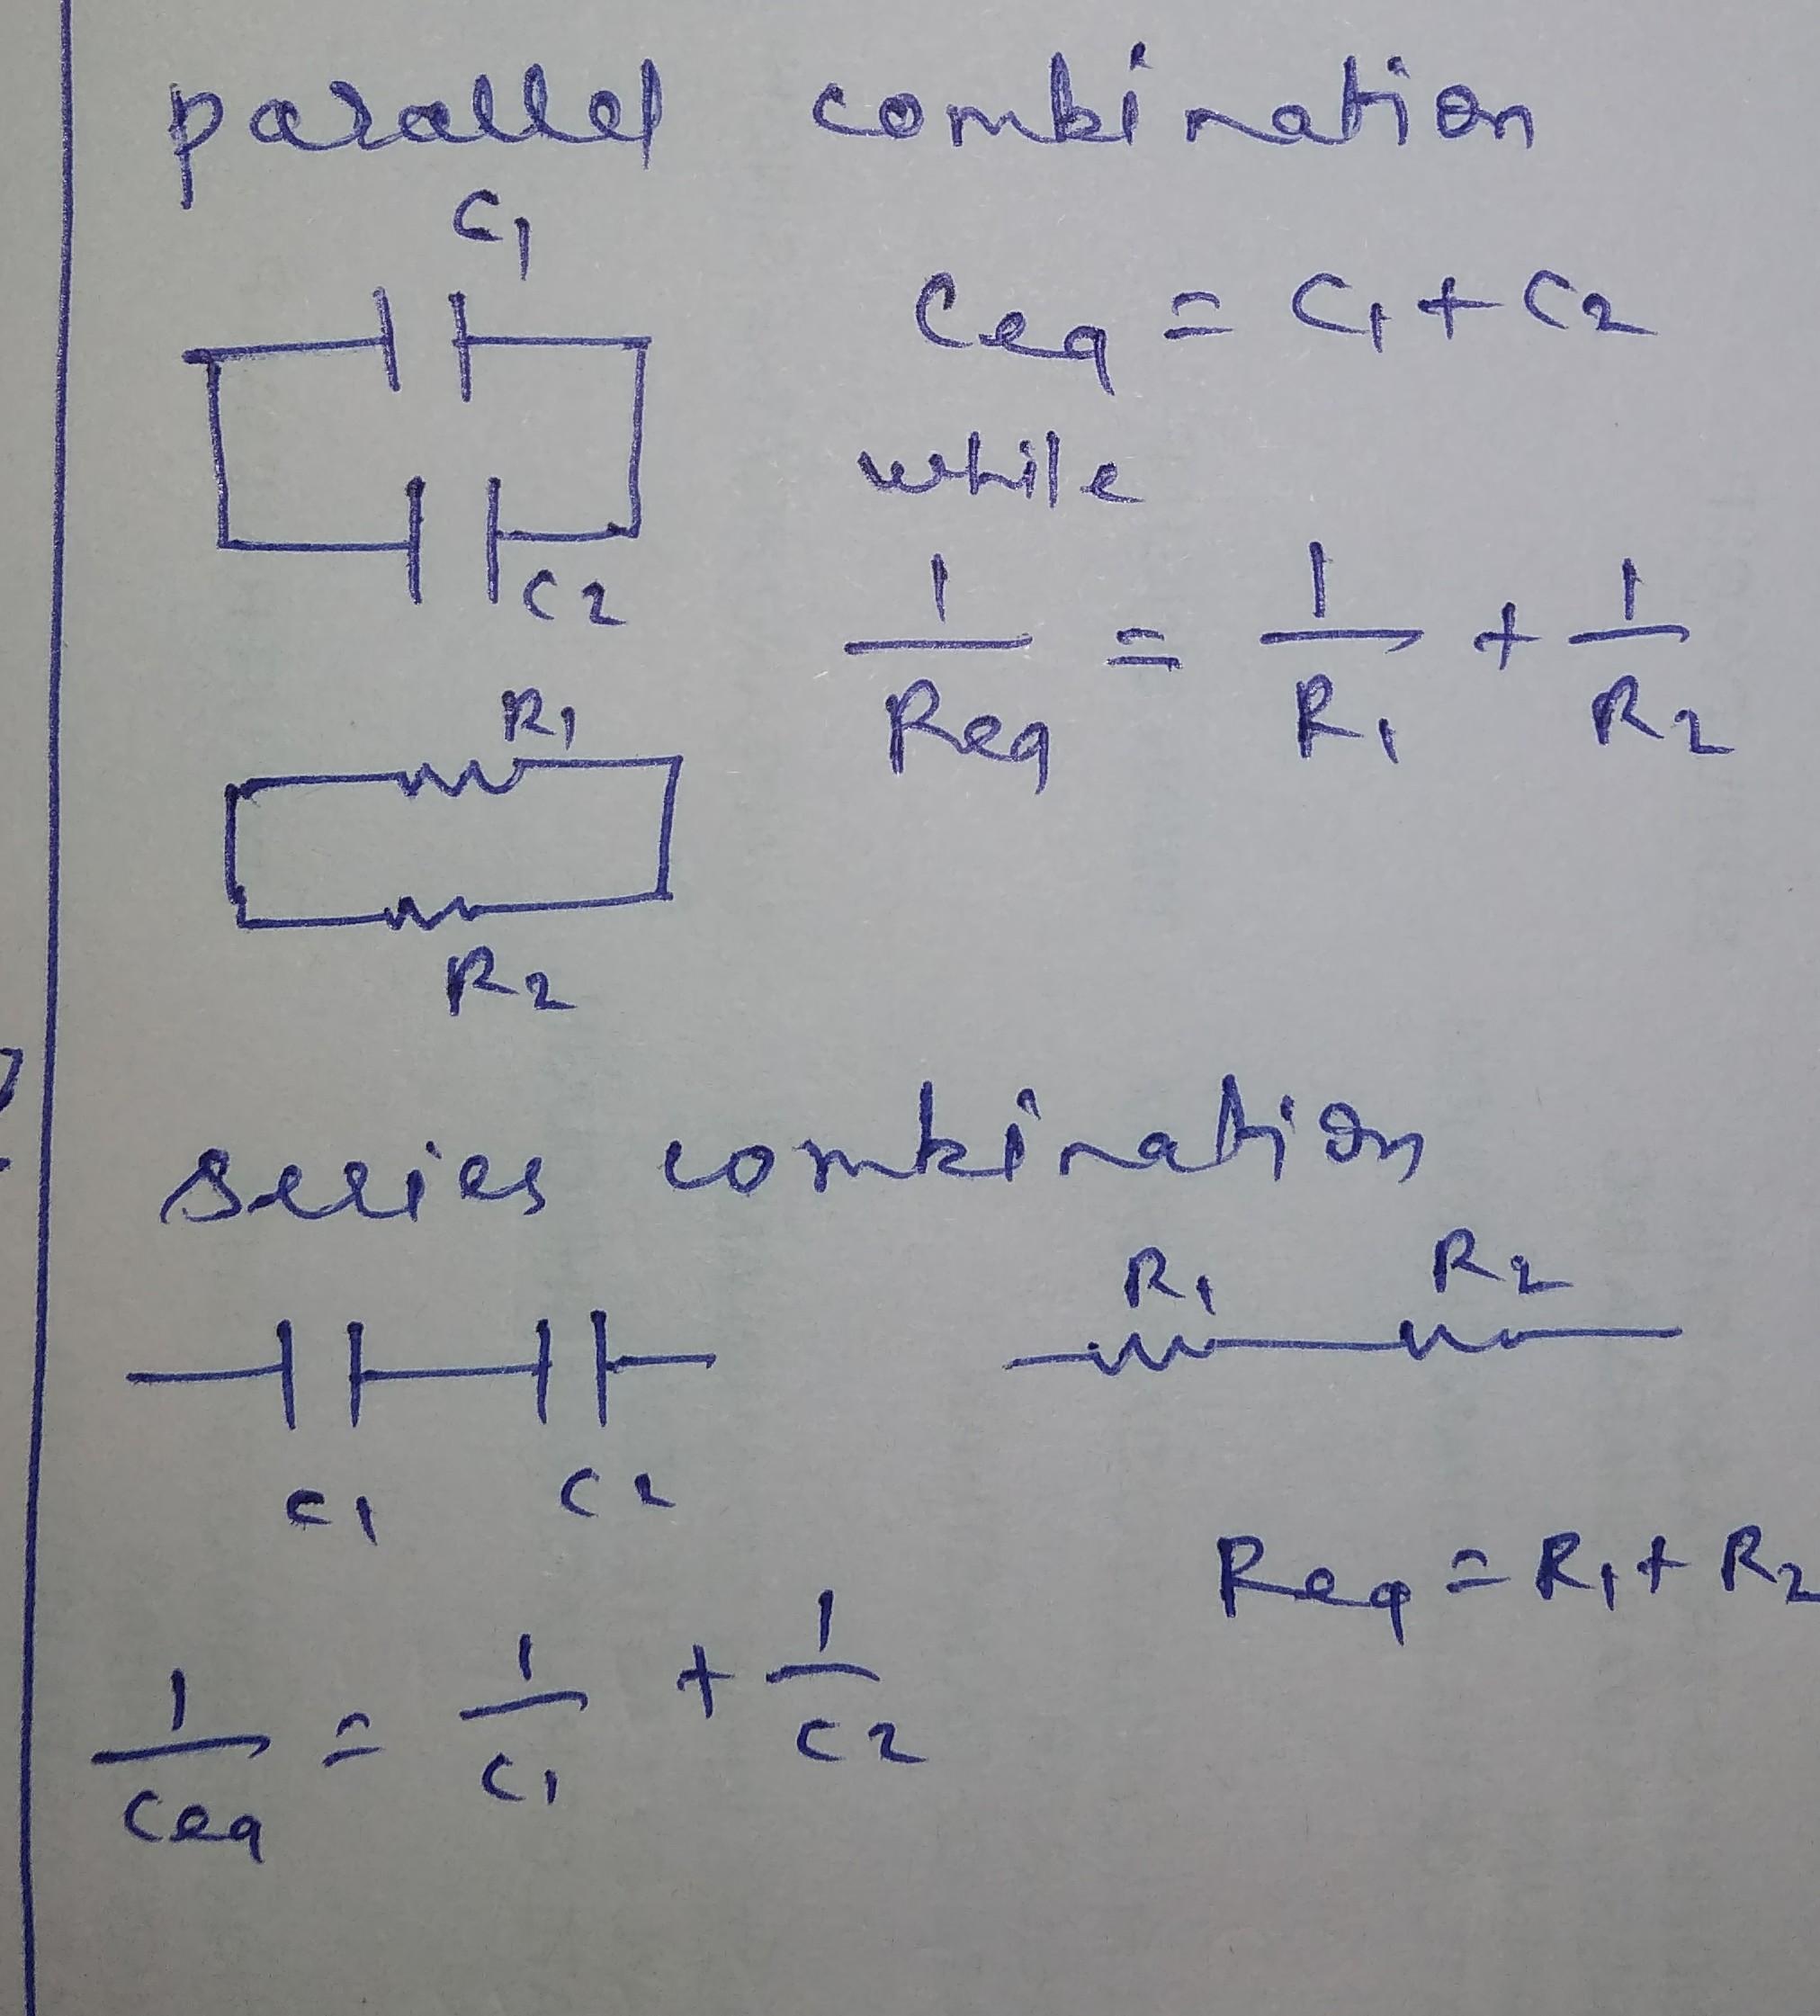 parallel combination
C1
Ceq = C1 + C2
while
C2
1/Req = 1/R1 + 1/R2
R1
R2
series combination
R1 R2
C1 C2
Req = R1 + R2
1/Ceq = 1/C1 + 1/C2